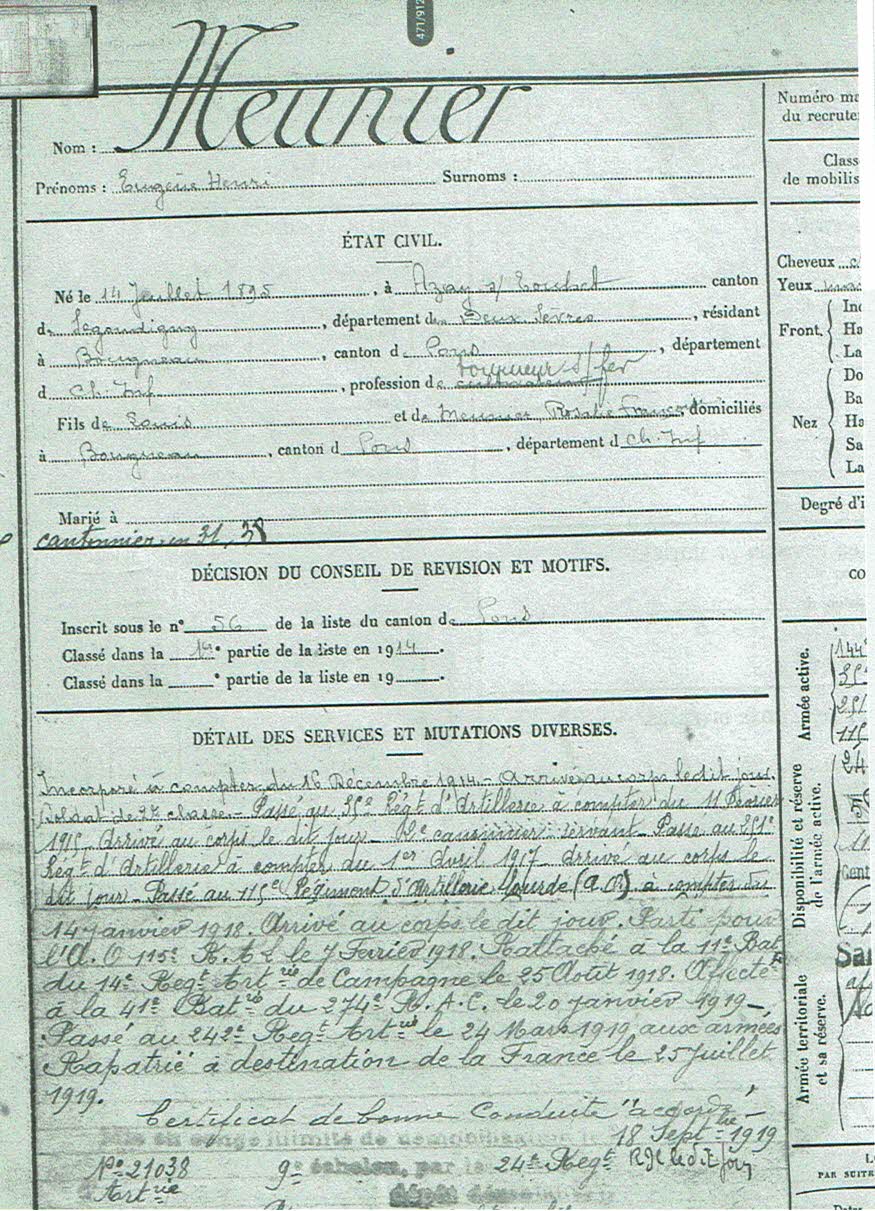 471/912
Meunier
Nom :
Prénoms : Eugène Henri Surnoms :
ÉTAT CIVIL.
Né le 14 Juillet 1895, à Azay s/ canton
de département des Deux Sèvres, résidant
à Bougneau, canton de Pons, département
d Ch. Inf, profession de cultivateur s/ fer
Fils de Louis et de Meunier Rosalie domiciliés
à Bougneau, canton d Pons, département d Ch. Inf
Marié à
cantonnier en 31, 38
DÉCISION DU CONSEIL DE REVISION ET MOTIFS.
Inscrit sous le n° 56 de la liste du canton de Pons
Classé dans la 1re partie de la liste en 1914.
Classé dans la ° partie de la liste en 19 .
DÉTAIL DES SERVICES ET MUTATIONS DIVERSES.
Incorporé à compter du 16 Décembre 1914. - Arrivé au corps le dit jour.
Soldat de 2e classe. - Passé au 35e Régt d'Artillerie à compter du 11 Février
1915 - Arrivé au corps le dit jour - 2e canonnier servant - Passé au 251e
Régt d'Artillerie à compter du 1er Avril 1917 - Arrivé au corps le
dit jour - Passé au 115e Régiment d'Artillerie lourde (A.O) à compter du
14 janvier 1918. Arrivé au corps le dit jour. Parti pour
l'A.O 115e R.A.L le 7 Février 1918. Rattaché à la 11e Bat
du 14e Regt Artrie de Campagne le 25 Août 1918. Affecté
à la 41e Batrie du 274e R.A.C. le 20 janvier 1919 -
Passé au 242e Regt Artrie le 24 Mars 1919 aux armées
Rapatrié à destination de la France le 25 juillet
1919.
Certificat de bonne Conduite "accordé"
Mis en congé illimité de démobilisation le 18 Septbre 1919
No 21038 9e échelon, par le 24e Regt le dit jour
Artrie dépôt démobilisateur
Numéro ma
du recrute
Class
de mobilis
Cheveux
Yeux
Front. Inc
Ha
La
Nez Do
Ba
Ha
Sa
La
Degré d'i
co
Armée active.
144e
35e
251
115
Disponibilité et réserve
de l'armée active.
24
Cent
Armée territoriale
et sa réserve.
PAR SUITE